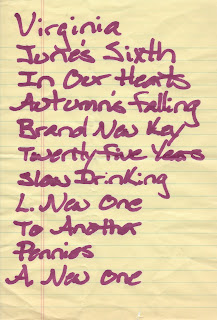 Virginia
June's Sixth
In Our Hearts
Autumn's Falling
Brand New Key
Twenty Five Years
Slow Drinking
L. New One
To Another
Pennies
A. New One